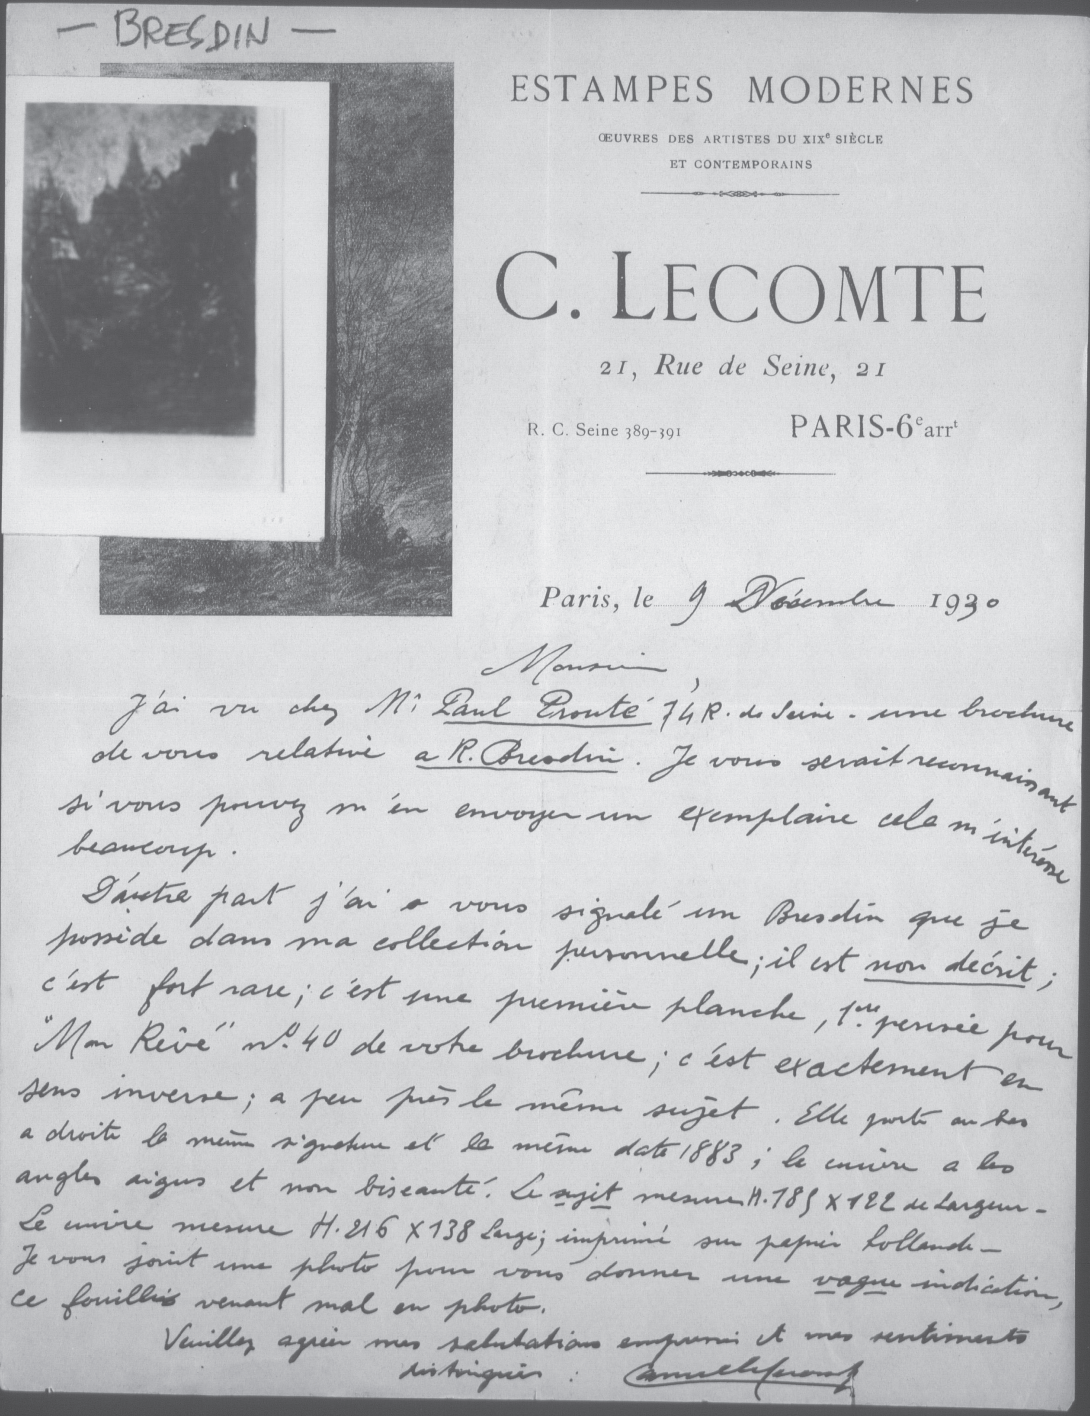 — BRESDIN —
ESTAMPES MODERNES
ŒUVRES DES ARTISTES DU XIXe SIÈCLE
ET CONTEMPORAINS
C. LECOMTE
21, Rue de Seine, 21
R. C. Seine 389-391
PARIS-6e arrt
Paris, le 9 Décembre 1930
Monsieur,
J'ai vu chez Mr Paul Prouté 74 R. de Seine - une brochure
de vous relative a R. Bresdin. Je vous serait reconnaissant
si vous pouvez m'en envoyer un exemplaire cela m'intéresse
beaucoup.
D'autre part j'ai a vous signalé un Bresdin que je
possède dans ma collection personnelle; il est non décrit;
c'est fort rare; c'est une première planche, 1ère pensée pour
"Mon Rêve" no. 40 de votre brochure; c'est exactement en
sens inverse; a peu près le même sujet. Elle porte au bas
a droite la même signature et la même date 1883; le cuivre a les
angles aigus et non biseauté. Le sujet mesure H. 185 x 122 de Largeur -
Le cuivre mesure H. 216 x 138 Large; imprimé sur papier hollande -
Je vous joint une photo pour vous donner une vague indication,
ce fouillis venant mal en photo.
Veuillez agréer mes salutations empressées et mes sentiments
distingués :